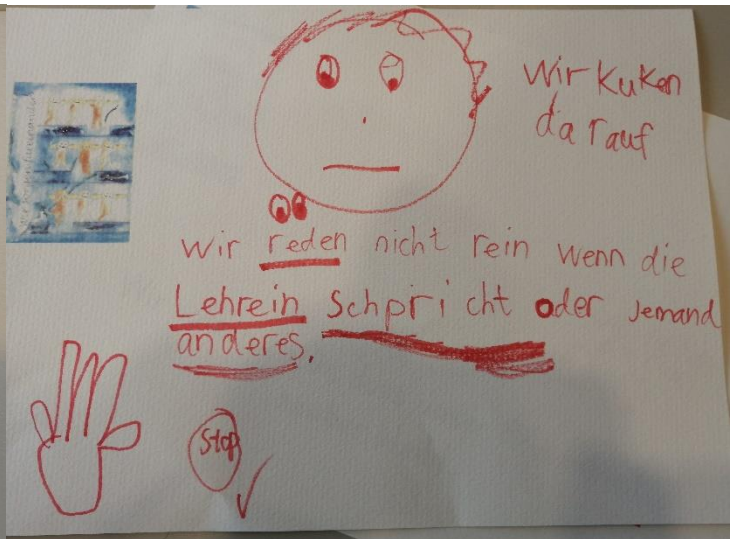 Wir kuken
darauf
Wir reden nicht rein wenn die
Lehrein Schpricht oder jemand
anderes.
Stop